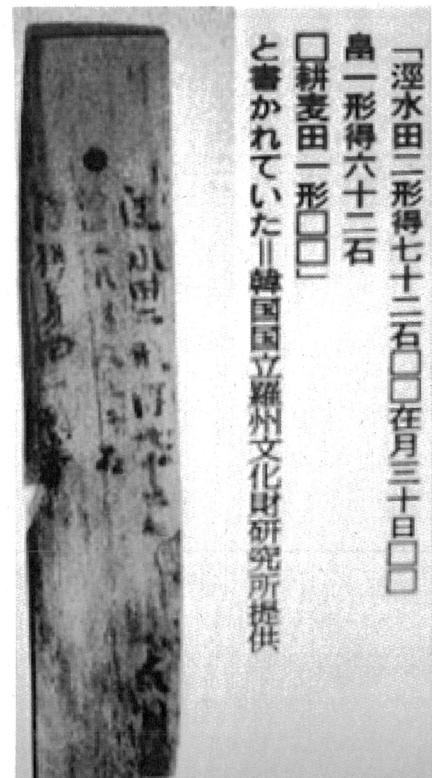 「涇水田二形得七十二石□□在月三十日□□
畠一形得六十二石
□耕麦田一形□□」
と書かれていた＝韓国国立羅州文化財研究所提供